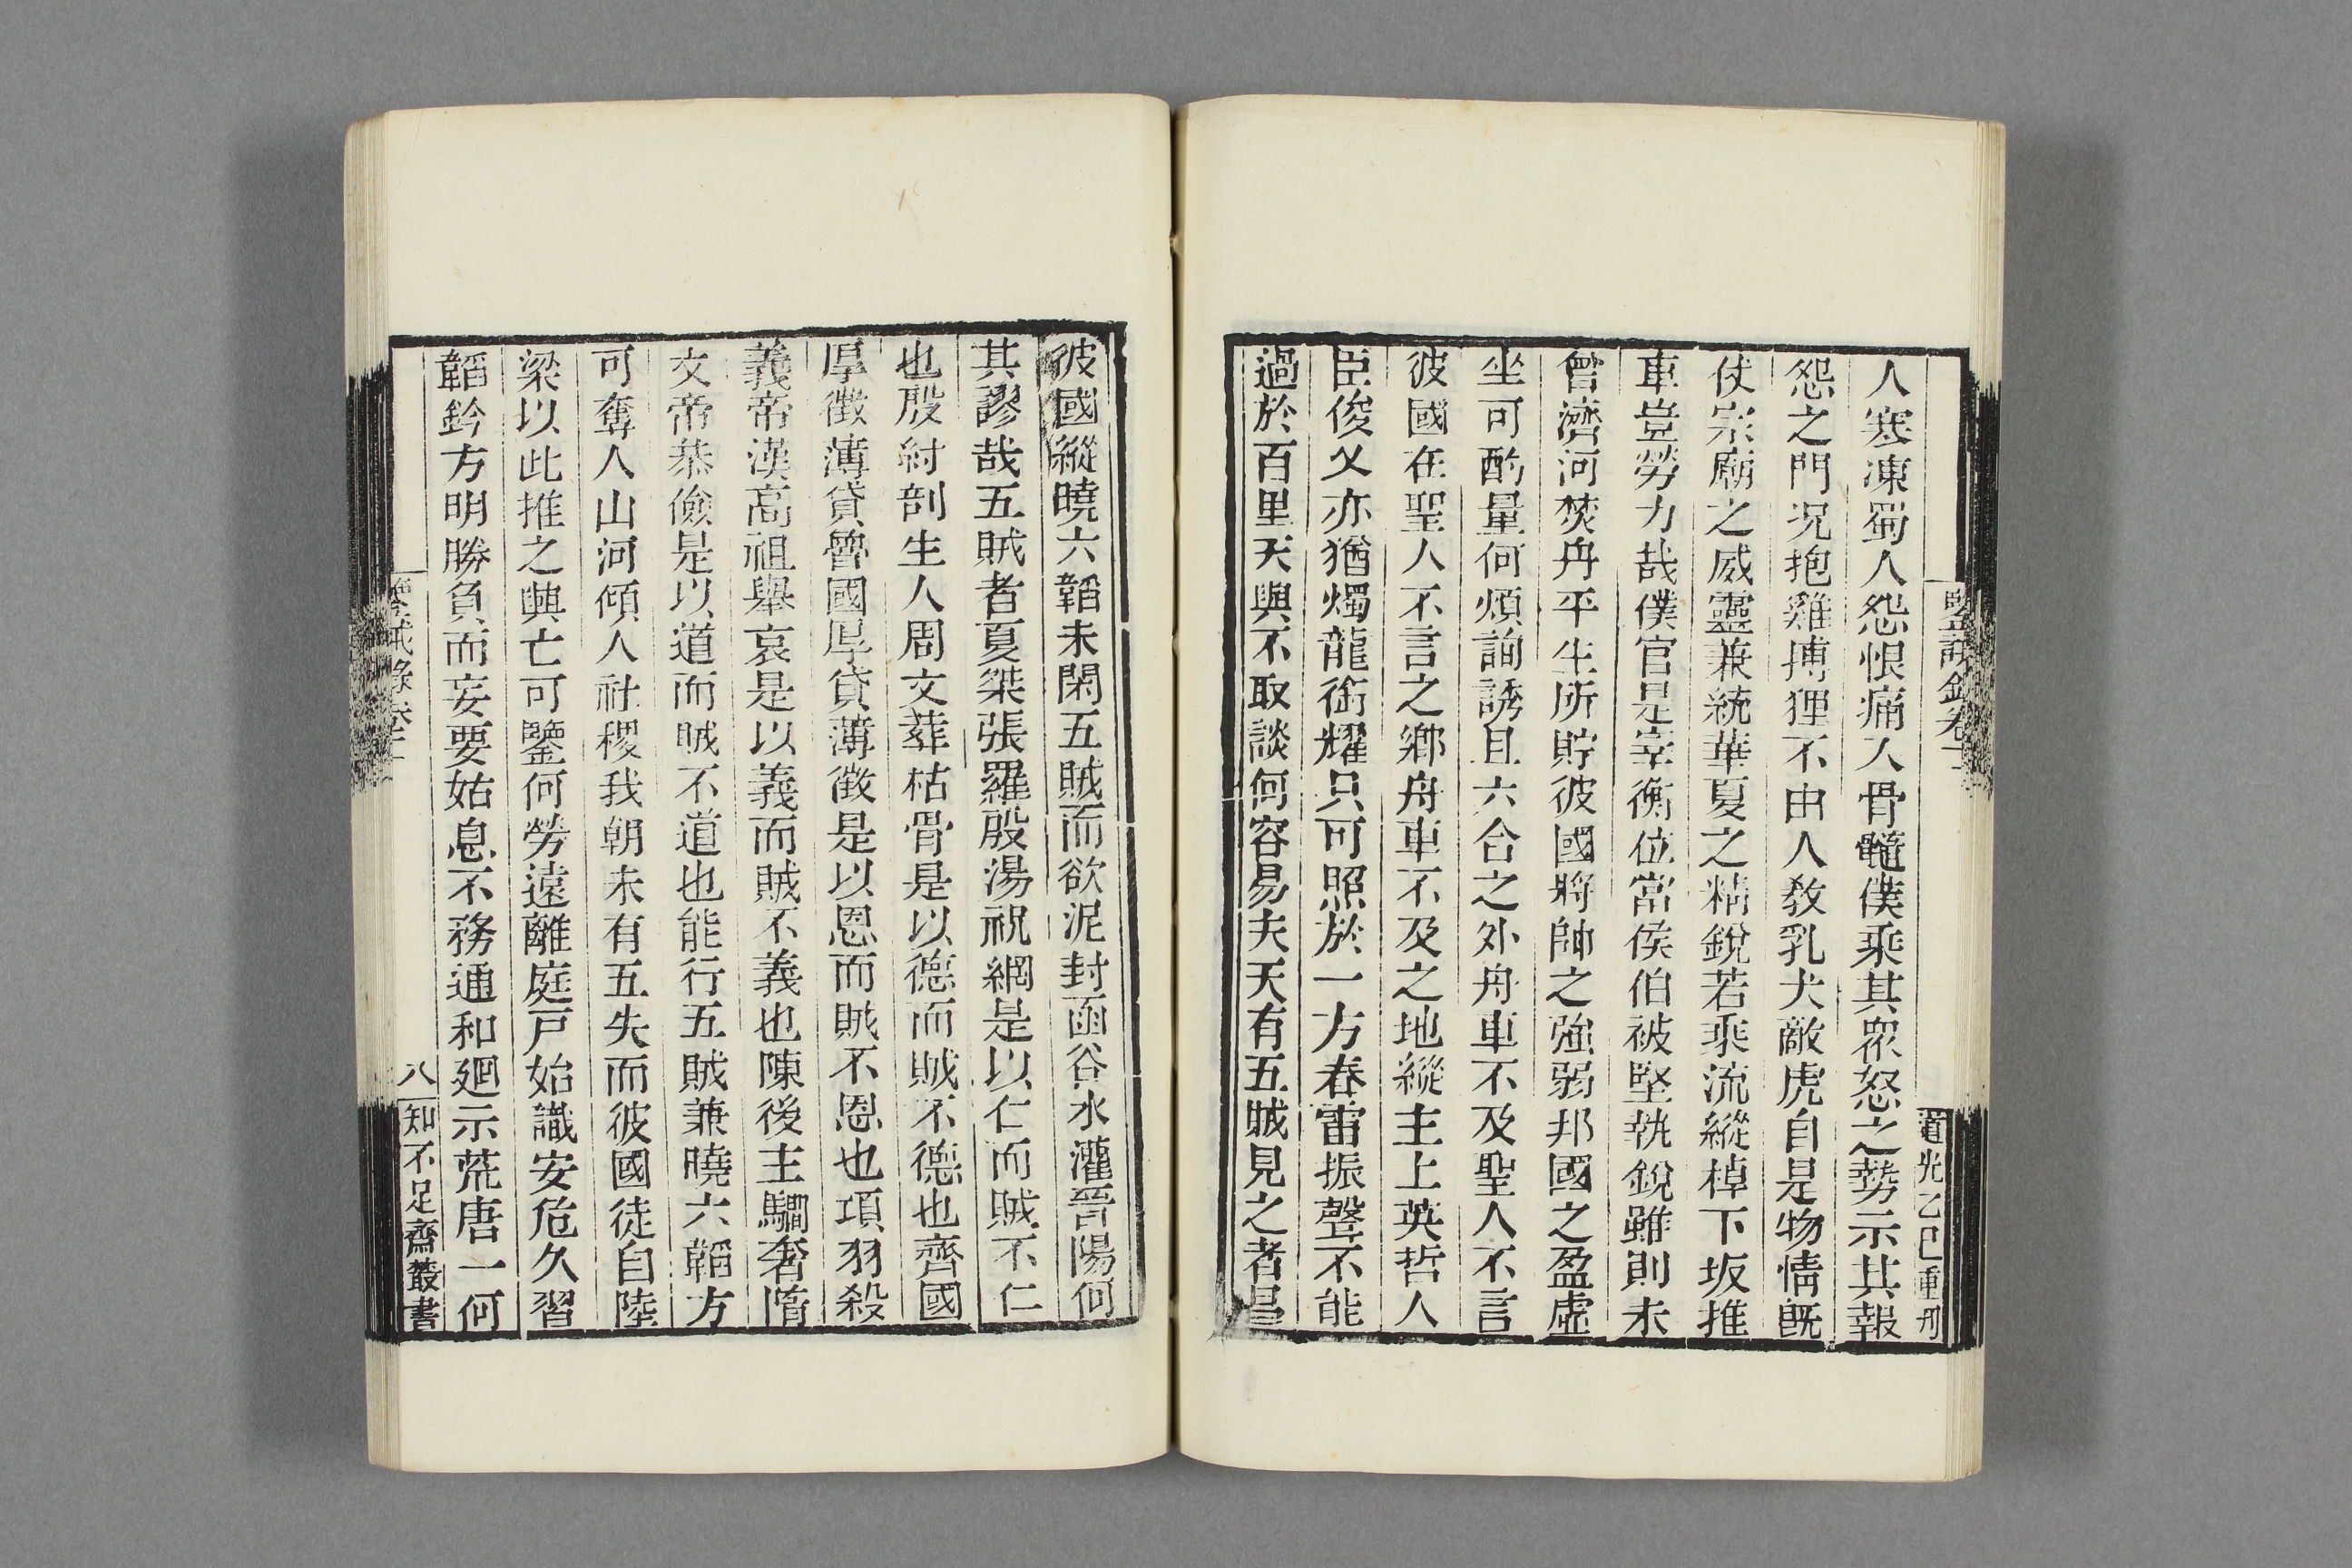 鑒誡錄卷二
道光乙巳重刋
人寒凍蜀人怨恨痛入骨髓僕乘其衆怒之勢示其報
怨之門况抱雞搏狸不由人教乳犬敵虎自是物情既
仗宗廟之威靈兼統華夏之精銳若乘流縱棹下坂推
車豈勞力哉僕官是宰衡位當侯伯被堅執銳雖則未
曾濟河焚舟平生所貯彼國將帥之強弱邦國之盈虛
坐可酌量何煩詢誘且六合之外舟車不及聖人不言
彼國在聖人不言之鄉舟車不及之地縱主上英哲人
臣俊乂亦猶燭龍銜耀只可照於一方春雷振聲不能
過於百里天與不取談何容易夫天有五賊見之者昌
彼國縱曉六韜未閑五賊而欲泥封函谷水灌晉陽何
其謬哉五賊者夏桀張羅殷湯祝網是以仁而賊不仁
也殷紂剖生人周文葬枯骨是以德而賊不德也齊國
厚徵薄貸魯國厚貸薄徵是以恩而賊不恩也項羽殺
義帝漢高祖舉哀是以義而賊不義也陳後主驕奢隋
文帝恭儉是以道而賊不道也能行五賊兼曉六韜方
可奪人山河傾人社稷我朝未有五失而彼國徒自陸
梁以此推之興亡可鑒何勞遠離庭戸始識安危久習
韜鈐方明勝負而妄要姑息不務通和廻示荒唐一何
鑒誡錄卷二
八
知不足齋叢書